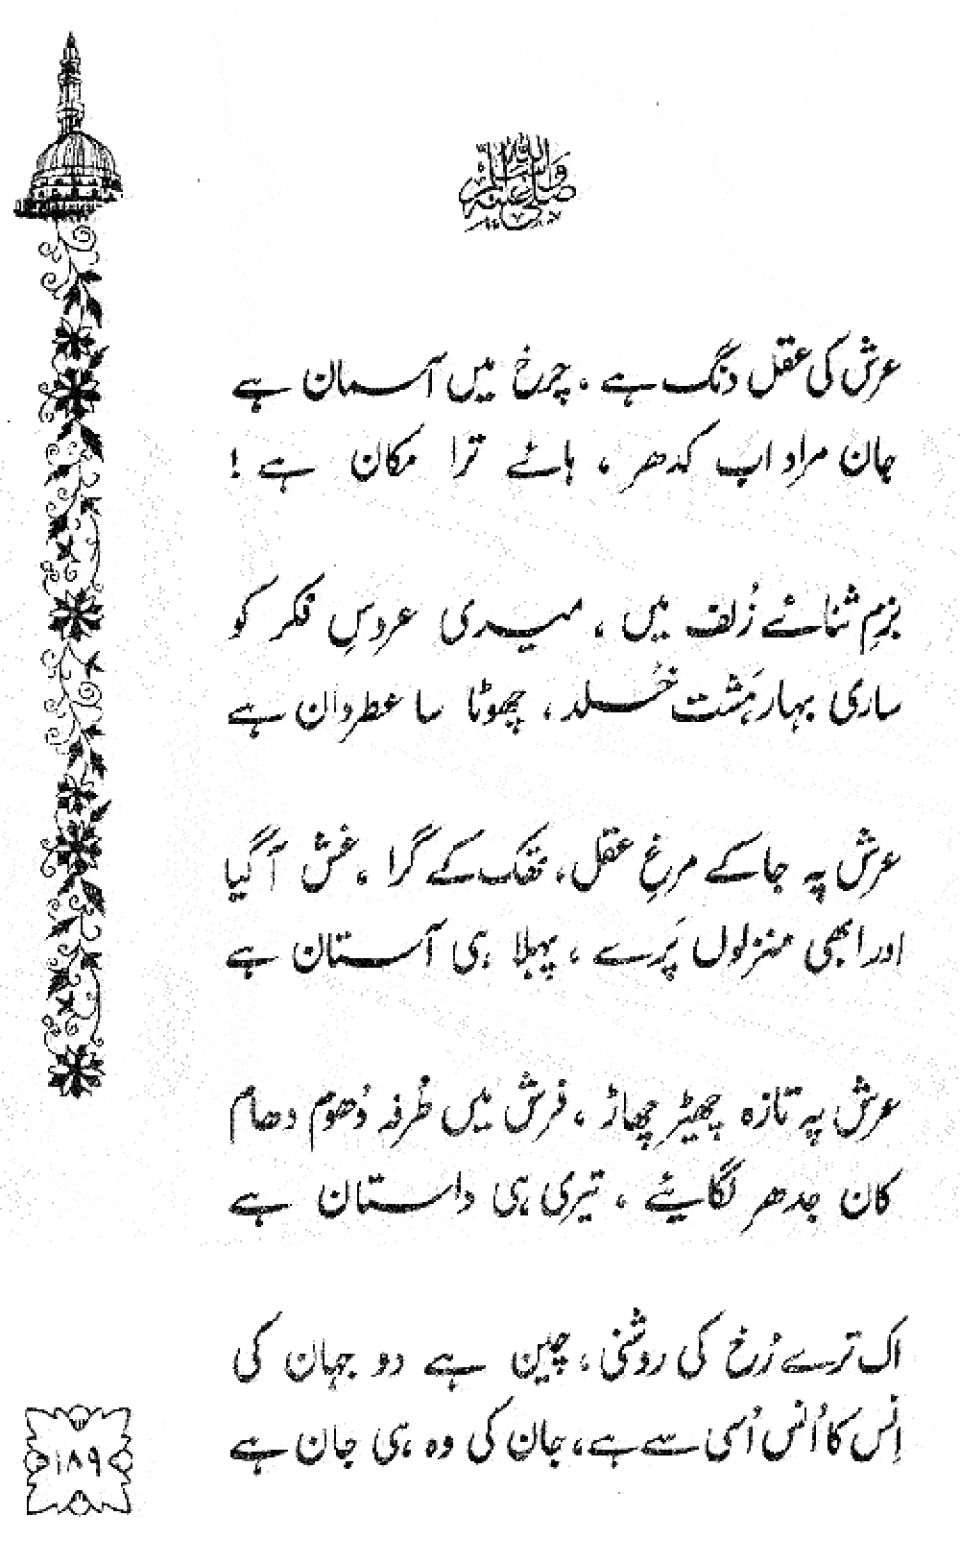 صلی اللہ علیہ وسلم
عرش کی عقل دنگ ہے ، چرخ میں آسمان ہے
جان مراد اب کدھر ، ہائے ترا مکان ہے !
بزمِ ثنائے زُلف میں ، میری عروسِ فکر کو
ساری بہار ہَشت خُلد ، چھوٹا سا عطردان ہے
عرش پہ جا کے مرغِ عقل ، تھک کے گرا ، غش آ گیا
اور ابھی منزلوں پَرے ، پہلا ہی آستان ہے
عرش پہ تازہ چھیڑ چھاڑ ، فرش میں طُرفہ دُھوم دھام
کان جدھر لگائیے ، تیری ہی داستان ہے
اک ترے رُخ کی روشنی ، چین ہے دو جہان کی
اِنس کا اُنس اُسی سے ہے ، جان کی وہ ہی جان ہے
۱۸۹